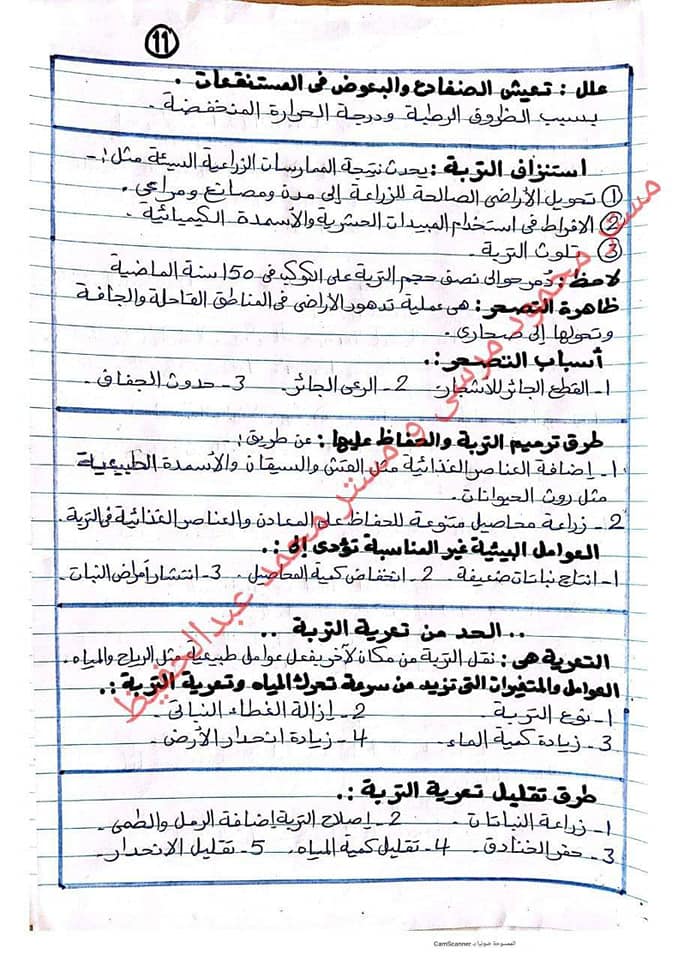 11
علل : تعيش الضفادع والبعوض في المستنقعات .
بسبب الظروف الرطبة ودرجة الحرارة المنخفضة .
استنزاف التربة : يحدث نتيجة الممارسات الزراعية السيئة مثل :-
① تحويل الأراضى الصالحة للزراعة إلى مدن ومصانع ومراعي .
② الافراط فى استخدام المبيدات الحشرية والأسمدة الكيميائية .
③ تلوث التربة .
لاحظ : دُمر حوالى نصف حجم التربة على الكوكب فى 150 سنة الماضية
ظاهرة التصحر : هى عملية تدهور الأراضى فى المناطق القاحلة والجافة
وتحولها إلى صحارى .
أسباب التصحر :.
1- القطع الجائر للأشجار 2- الرعى الجائر. 3- حدوث الجفاف .
طرق ترميم التربة والحفاظ عليها : عن طريق :
1- إضافة العناصر الغذائية مثل القش والسيقان والأسمدة الطبيعية
مثل روث الحيوانات .
2- زراعة محاصيل متنوعة للحفاظ على المعادن والعناصر الغذائية فى التربة .
العوامل البيئية غير المناسبة تؤدى إلى :.
1- انتاج نباتات ضعيفة . 2- انخفاض كمية المحاصيل . 3- انتشار أمراض النبات .
.. الحد من تعرية التربة ..
التعرية هى : نقل التربة من مكان لآخر بفعل عوامل طبيعية مثل الرياح والمياه .
العوامل والمتغيرات التى تزيد من سرعة تحرك المياه وتعرية التربة :.
1- نوع التربة . 2- إزالة الغطاء النباتى .
3- زيادة كمية الماء . 4- زيادة انحدار الأرض .
طرق تقليل تعرية التربة :.
1- زراعة النباتات . 2- إصلاح التربة إضافة الرمل والطمى .
3- حفر الخنادق . 4- تقليل كمية المياه . 5- تقليل الانحدار .
مستر محمود مرسى و مستر محمد عبدالحفيظ
الممسوحة ضوئيا بـ CamScanner